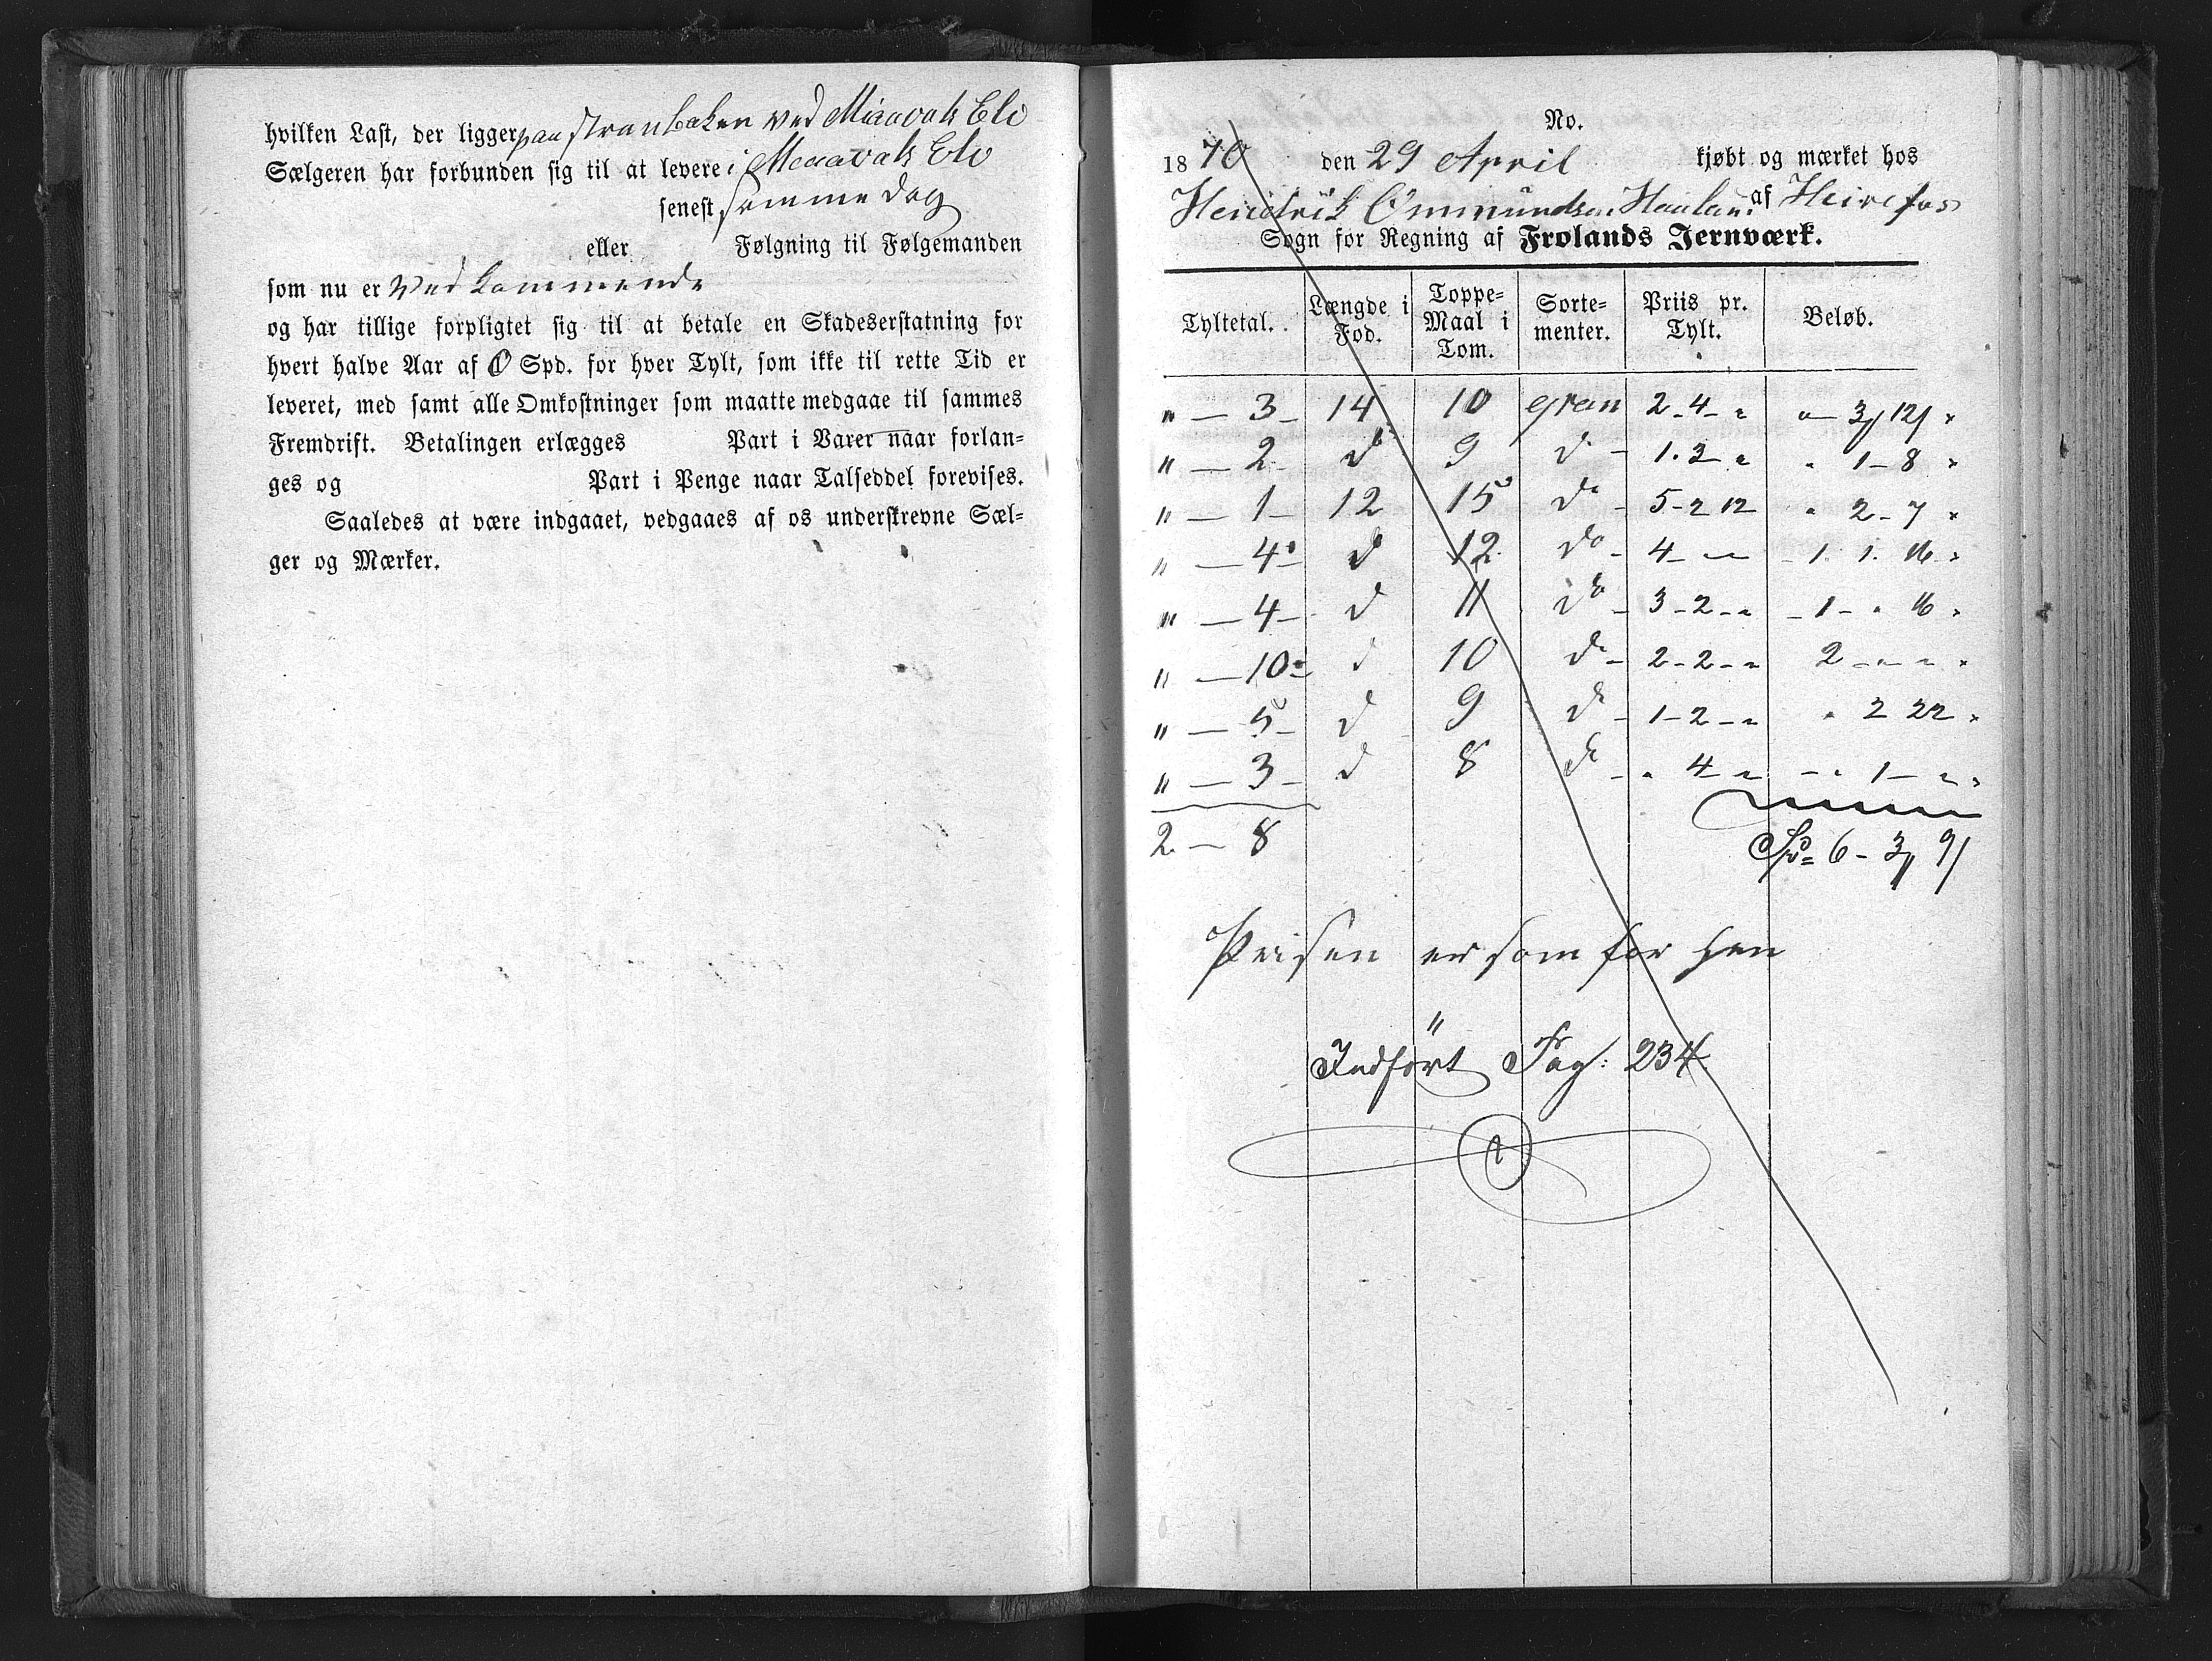 hvilken Last, der ligger paa stranbaken ved Miaavats Elv
Sælgeren har forbunden sig til at levere i Miaavats Elv
senest samme dag
eller Følgning til Følgemanden
som nu er Ved kommende
og har tillige forpligtet sig til at betale en Skadeserstatning for
hvert halve Aar af 0 Spd. for hver Tylt, som ikke til rette Tid er
leveret, med samt alle Omkostninger som maatte medgaae til sammes
Fremdrift. Betalingen erlægges Part i Varer naar forlan-
ges og Part i Penge naar Talseddel forevises.
Saaledes at være indgaaet, vedgaaes af os underskrevne Sæl-
ger og Mærker.
No.
1870 den 29 April kjøbt og mærket hos
Hendrik Ommundsen Haaland af Heirefos
Sogn for Regning af Frolands Jernværk.
Tyltetal. Længde i Fod. Toppe-Maal i Tom. Sorte-menter. Priis pr. Tylt. Beløb.
" — 3 — 14 10 gran 2 - 4 - " " — 3/ 12/ "
" — 2 — d 9 d - 1 - 2 - " " 1 - 8 "
" — 1 — 12 15 do - 5 - 2 12 " 2 - 7 "
" — 4 — d 12 do - 4 - — 1 . 1 . 16 "
" — 4 — d 11 do - 3 - 2 - " 1 - " 16 "
" — 10 — d 10 do - 2 - 2 - " 2 - " - " "
" — 5 — d 9 do - 1 - 2 - " " 2 22 "
" — 3 — d 8 do - " 4 - " - " 1 - " "
2 — 8
Spd 6 - 3/ 9/
Prisen er som før hen
"
Indført Pag: 234